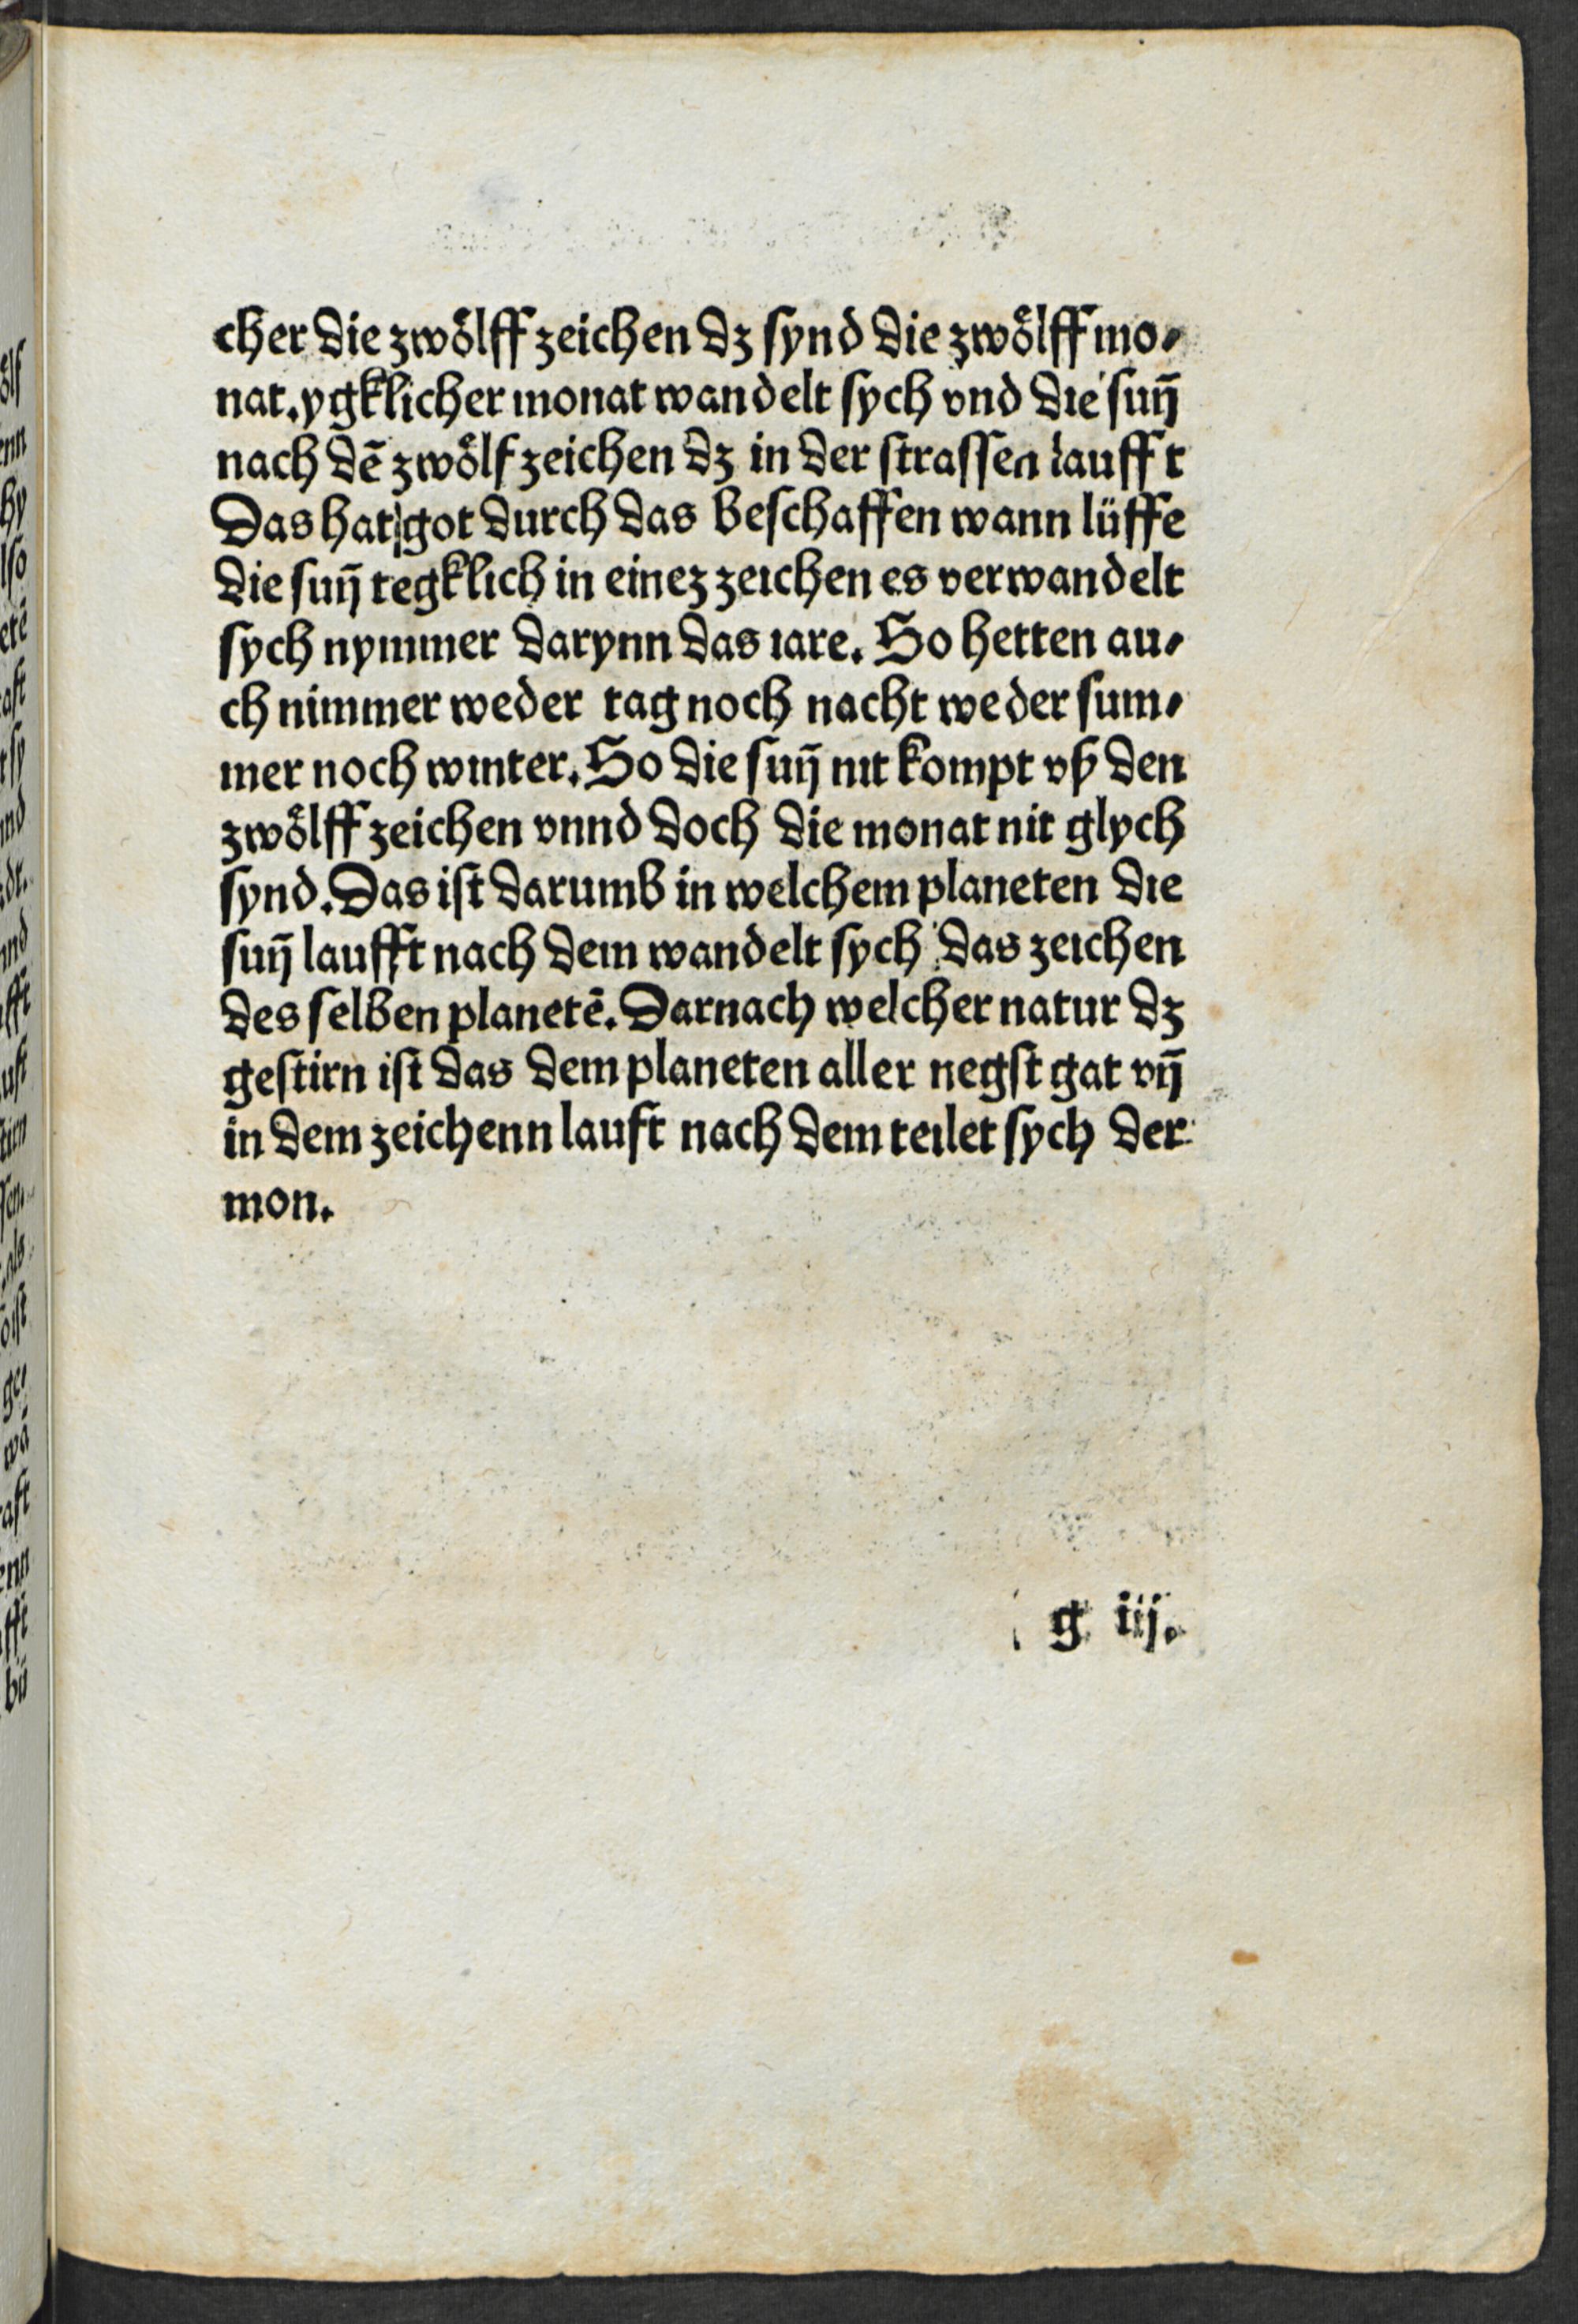 cher die zwoͤlff zeichen dz synd die zwoͤlff mo⸗
nat. ygklicher monat wandelt sych vnd die sun̄
nach dē zwoͤlf zeichen dz in der strassen laufft
Das hat got durch das beschaffen wann lüffe
die sun̄ tegklich in einez zeichen es verwandelt
sych nymmer darynn das iare. So hetten au⸗
ch nimmer weder tag noch nacht weder sum⸗
mer noch winter. So die sun̄ nit kompt vß den
zwoͤlff zeichen vnnd doch die monat nit glych
synd. Das ist darumb in welchem planeten die
sun̄ laufft nach dem wandelt sych das zeichen
des selben planetē. Darnach welcher natur dz
gestirn ist das dem planeten aller negst gat vn̄
in dem zeichenn lauft nach dem teilet sych der
mon.
g iij.